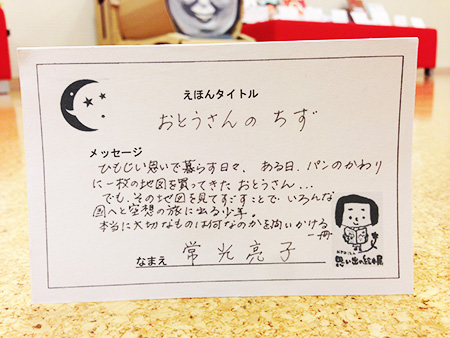 えほんタイトル
おとうさんの ちず
メッセージ
ひもじい思いで暮らす日々。ある日、パンのかわり
に一枚の地図を買ってきた おとうさん...
でも、その地図を見てすごすことで いろんな
国へと空想の旅に出る少年。
本当に大切なものは何なのかを問いかける
一冊
なまえ 常光亮子
思い出の絵本展